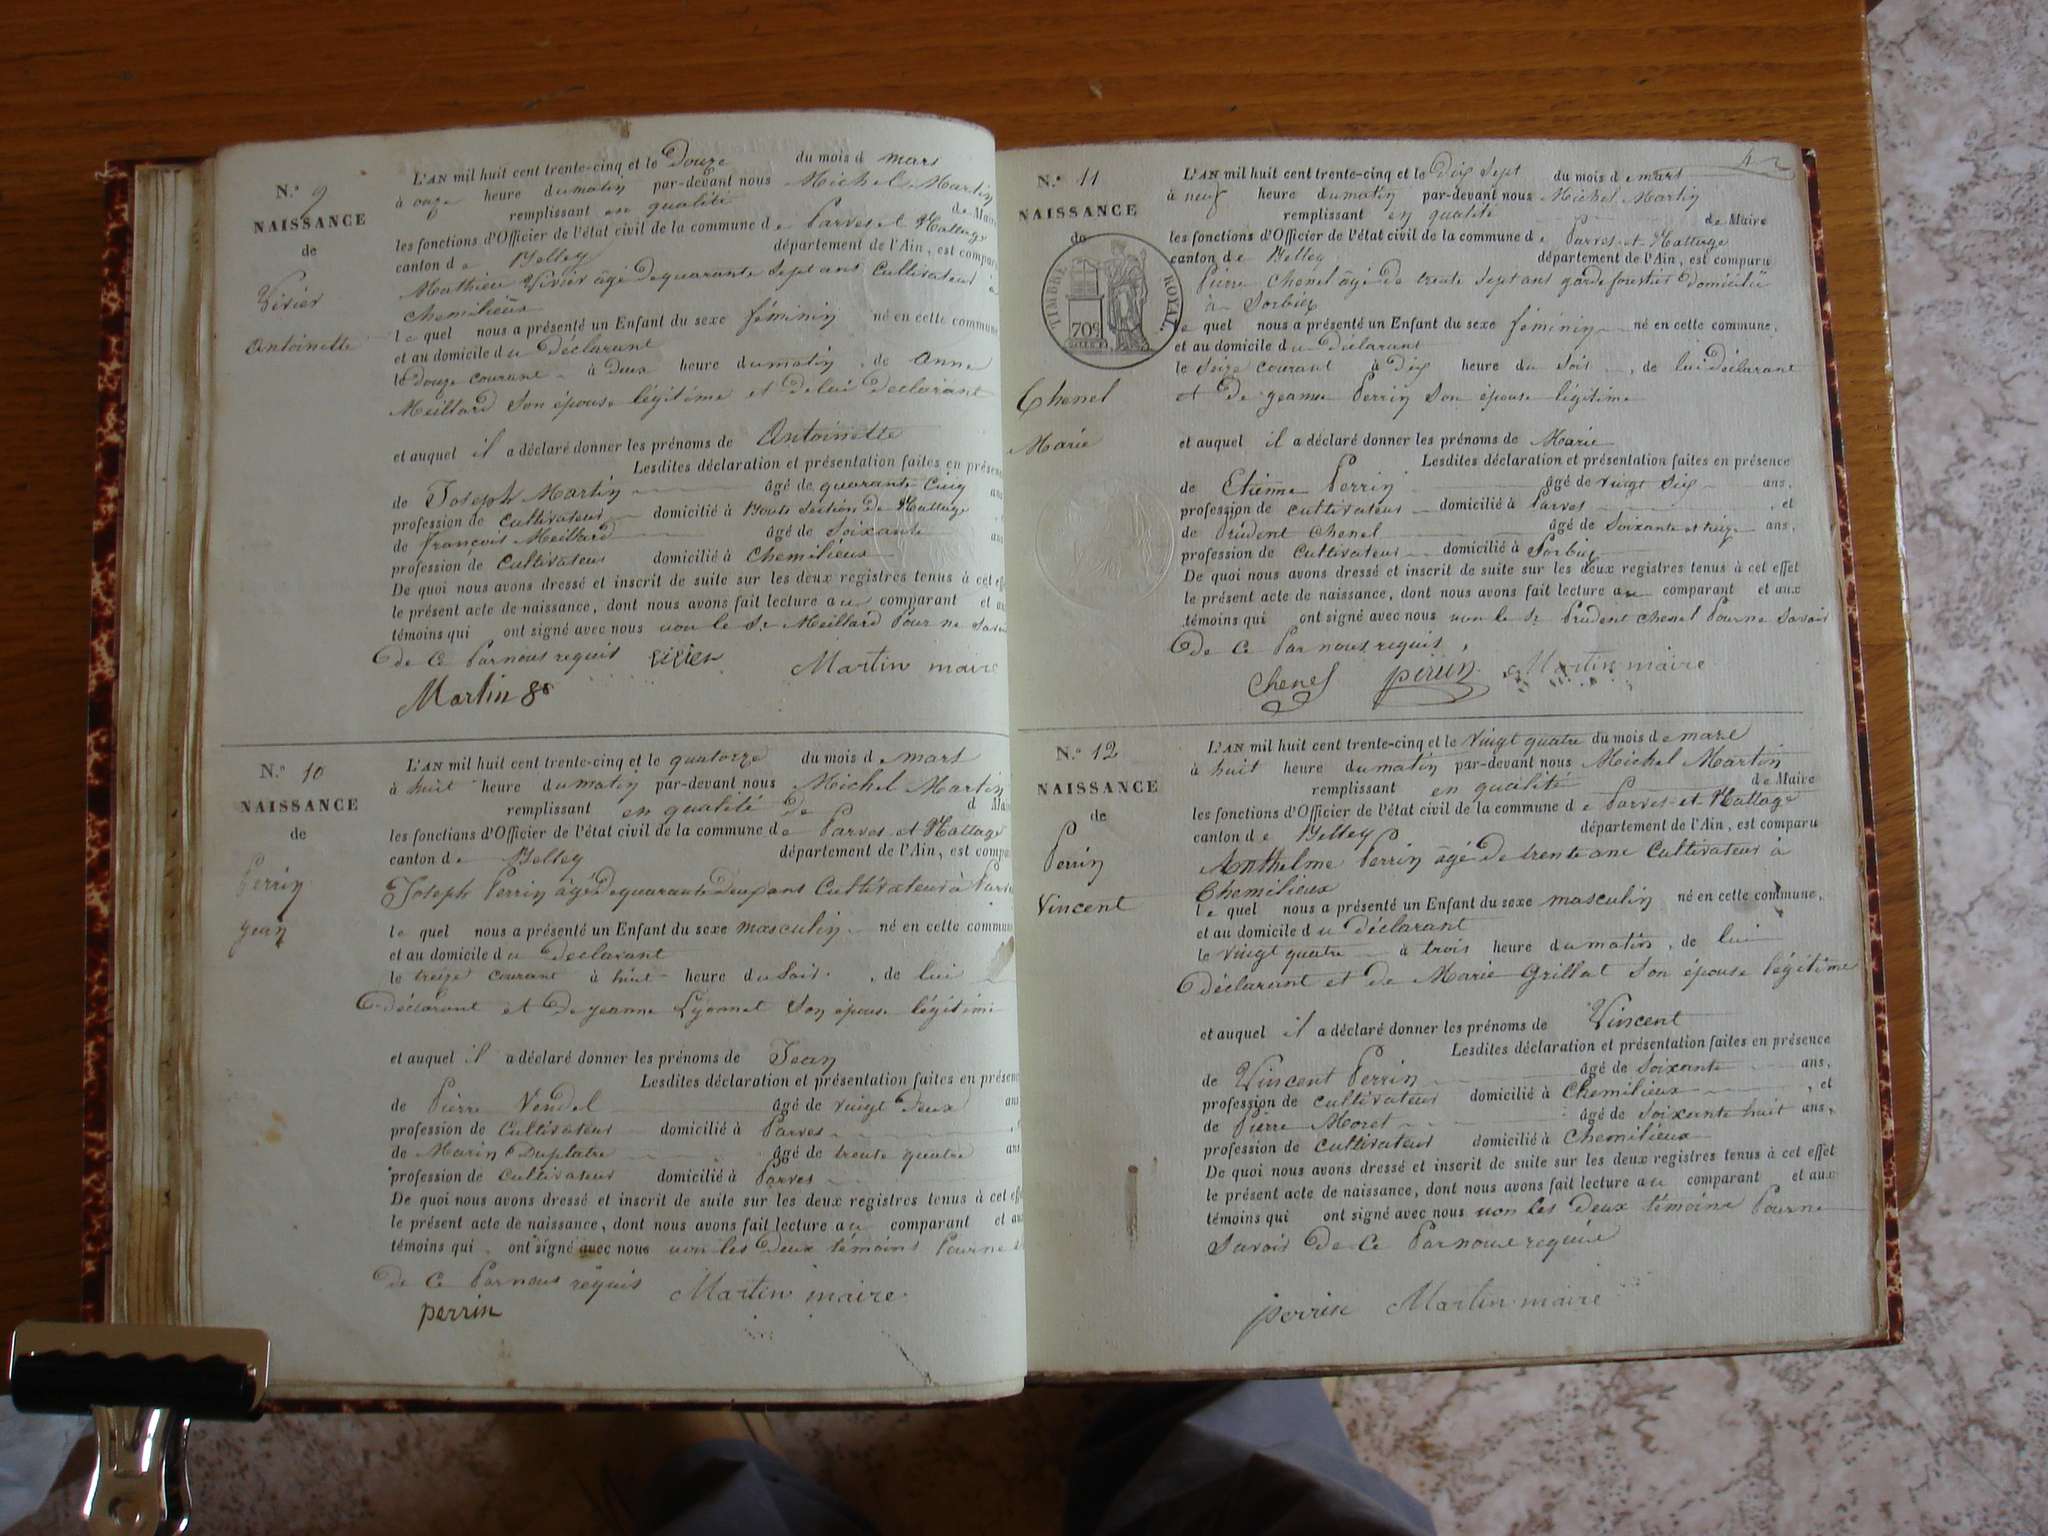 N.° 9
NAISSANCE
de
Vivier
Antoinette
L'AN mil huit cent trente-cinq et le Douze du mois d mars
à onze heure du matin par-devant nous Michel Martin
remplissant en qualité de Maire
les fonctions d'Officier de l'état civil de la commune de Parves et Nattage
canton de Belley département de l'Ain, est comparu
Mathieu Vivier âgé de quarante sept ans Cultivateur à
Chemilieux
le quel nous a présenté un Enfant du sexe féminin né en cette commune
et au domicile du Déclarant
le douze courant à deux heure du matin, de Anne
Meillard son épouse légitime et de lui Declarant
et auquel il a déclaré donner les prénoms de Antoinette
Lesdites déclaration et présentation faites en présence
de Joseph Martin âgé de quarante Cinq ans
profession de Cultivateur domicilié à Section de Nattage
de françois Meillard âgé de Soixante ans
profession de Cultivateur domicilié à Chemilieux
De quoi nous avons dressé et inscrit de suite sur les deux registres tenus à cet effet
le présent acte de naissance, dont nous avons fait lecture au comparant et aux
témoins qui ont signé avec nous non le Sr Meillard Pour ne Savoir
de Ce Par nous requis vivier Martin maire
Martin
N.° 10
NAISSANCE
de
Perrin
jean
L'AN mil huit cent trente-cinq et le quatorze du mois de mars
à huit heure du matin par-devant nous Michel Martin
remplissant en qualité de d Maire
les fonctions d'Officier de l'état civil de la commune de Parves et Nattage
canton de Belley département de l'Ain, est comparu
Joseph Perrin âgé de quarante Deux ans Cultivateur à Parves
le quel nous a présenté un Enfant du sexe masculin né en cette commune
et au domicile du Declarant
le treize courant à huit heure du Soir, de lui
déclarant et de jeanne Lyonnet Son épouse légitime
et auquel il a déclaré donner les prénoms de Jean
Lesdites déclaration et présentation faites en présence
de Pierre Vendel âgé de vingt deux ans
profession de Cultivateur domicilié à Parves
de Marin Duplatre âgé de trente quatre ans
profession de Cultivateur domicilié à Parves
De quoi nous avons dressé et inscrit de suite sur les deux registres tenus à cet effet
le présent acte de naissance, dont nous avons fait lecture au comparant et aux
témoins qui ont signé avec nous non les deux témoins Pour ne
de Ce Par nous requis Martin maire
perrin
42
N.° 11
NAISSANCE
de
TIMBRE ROYAL.
70c
Chenel
Marie
L'AN mil huit cent trente-cinq et le Dix Sept du mois de mars
à neuf heure du matin par-devant nous Michel Martin
remplissant en qualité de Maire
les fonctions d'Officier de l'état civil de la commune de Parves et Nattage
canton de Belley département de l'Ain, est comparu
Pierre Chenel âgé de trente Sept ans garde forestier domicilié
à Sorbier
le quel nous a présenté un Enfant du sexe féminin né en cette commune,
et au domicile du Déclarant
le Seize courant à Dix heure du Soir, de lui Déclarant
et de jeanne Perrin Son épouse légitime
et auquel il a déclaré donner les prénoms de Marie
Lesdites déclaration et présentation faites en présence
de Etienne Perrin âgé de vingt Six ans,
profession de Cultivateur domicilié à Parves, et
de Prudent Chenel âgé de Soixante et treize ans,
profession de Cultivateur domicilié à Sorbier
De quoi nous avons dressé et inscrit de suite sur les deux registres tenus à cet effet
le présent acte de naissance, dont nous avons fait lecture au comparant et aux
témoins qui ont signé avec nous non le Sr Prudent Chenel Pour ne Savoir
de Ce Par nous requis
Chenel perrin Martin maire
N.° 12
NAISSANCE
de
Perrin
Vincent
L'AN mil huit cent trente-cinq et le vingt quatre du mois de mars
à huit heure du matin par-devant nous Michel Martin
remplissant en qualité de Maire
les fonctions d'Officier de l'état civil de la commune de Parves et Nattage
canton de Belley département de l'Ain, est comparu
Anthelme Perrin âgé de trente ans Cultivateur à
Chemilieux
le quel nous a présenté un Enfant du sexe masculin né en cette commune,
et au domicile du Déclarant
le vingt quatre à trois heure du matin, de lui
déclarant et de Marie Grillat Son épouse légitime
et auquel il a déclaré donner les prénoms de Vincent
Lesdites déclaration et présentation faites en présence
de Vincent Perrin âgé de Soixante ans,
profession de Cultivateur domicilié à Chemilieux, et
de Pierre Moret âgé de Soixante huit ans,
profession de Cultivateur domicilié à Chemilieux
De quoi nous avons dressé et inscrit de suite sur les deux registres tenus à cet effet
le présent acte de naissance, dont nous avons fait lecture au comparant et aux
témoins qui ont signé avec nous non les Deux témoins Pour ne
Savoir de Ce Par nous requis
perrin Martin maire